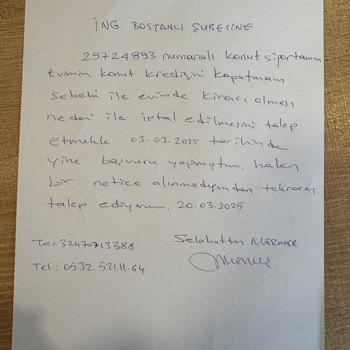 İNG BOSTANLI ŞUBESİNE
29724893 numaralı konut sigortamın
evimin konut kredisini kapatmam
sebebi ile evimde kiracı olması
nedeni ile iptal edilmesini talep
etmekle 03-03-2025 tarihinde
yine başvuru yapmıştım. halen
bir netice alınmadığından tekraren
talep ediyorum. 20.03.2025
Tc: 32470713388 Selahattin
Tel: 0532 521.11.64